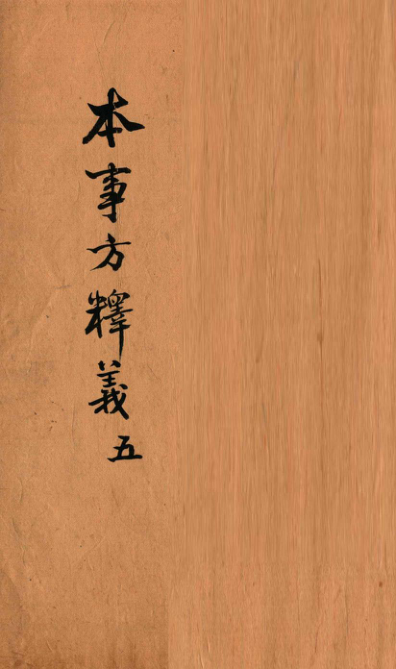 本事方釋義五